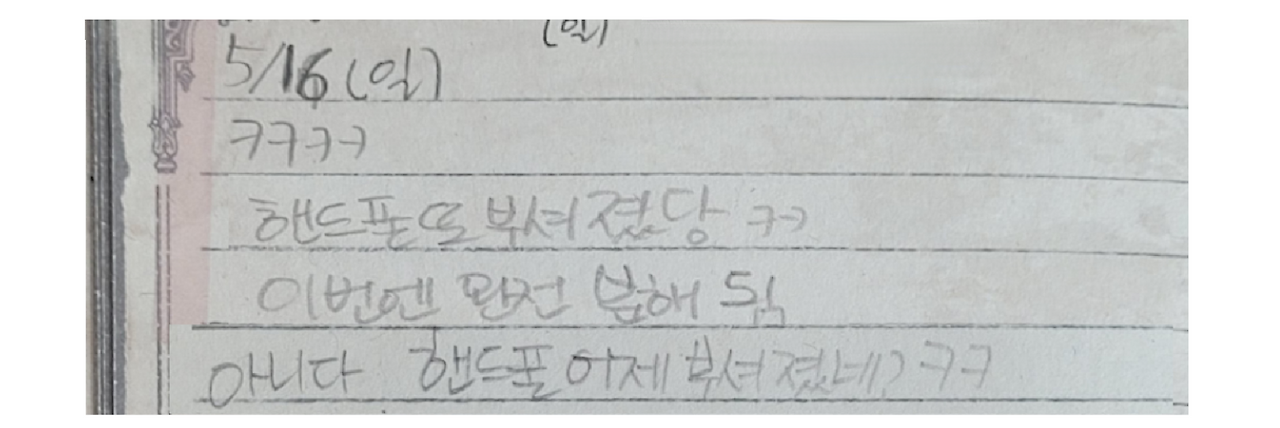 (일)
5/16 (일)
ㅋㅋㅋㅋ
핸드폰 또 부셔졌당 ㅋㅋ
이번엔 완전 분해 됨
아니다 핸드폰 어제 부셔졌네? ㅋㅋ